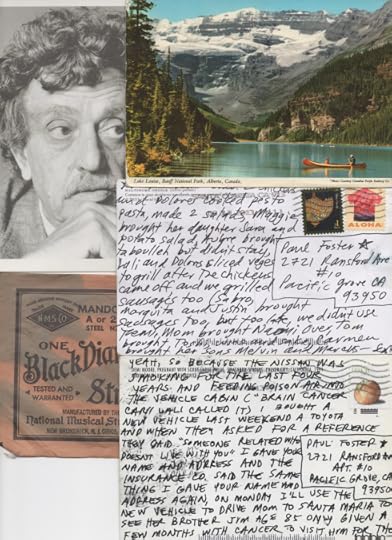 Lake Louise, Banff National Park, Alberta, Canada.
pasta, made 2 salads, Maggie
brought her daughter Sara and
potato salad, Aubre brought
tabouleh but didn't stay,
Paul Foster
2721 Ransford Ave
#10
Pacific grove CA
93950
ALOHA
and Dolores sliced veges
to grill after the chickens
came off and we grilled
sausages too
Marquita and Justin brought
sausages too, but too late, we didn't use
them, Mom brought Neomi over, Tom
brought
brought her sons Melvin and
MANDO
A or 2
STEEL
N.M.S.CO.
ONE
Black Dia
TESTED
AND
WARRANTED
St
MANUFACTURED BY THE
National Musical St
NEW BRUNSWICK, N. J.
YEAH, SO BECAUSE THE NISSAN WAS
SMOKING FOR THE LAST FOR
YEARS AND FEEDING POISON AROUND
THE VEHICLE CABIN ("BRAIN CANCER
CAR" WALI CALLED IT) I BOUGHT A
NEW VEHICLE LAST WEEKEND A TOYOTA
AND WHEN THEY ASKED FOR A REFERENCE
THEY SAID "SOMEONE RELATED WHO
DOESN'T LIVE WITH YOU" I GAVE YOUR
NAME AND ADDRESS AND THE
INSURANCE CO. SAID THE SAME
THING I GAVE YOUR NAME AND
ADDRESS AGAIN, ON MONDAY I'LL USE THE
NEW VEHICLE TO DRIVE MOM TO SANTA MARIA TO
SEE HER BROTHER JIM AGE 85 ONLY GIVEN A
FEW MONTHS WITH CANCER TO VISIT HIM FOR THE
PAUL FOSTER
2721 RANSFORD
APT. #10
PACIFIC GROVE, CA
93950